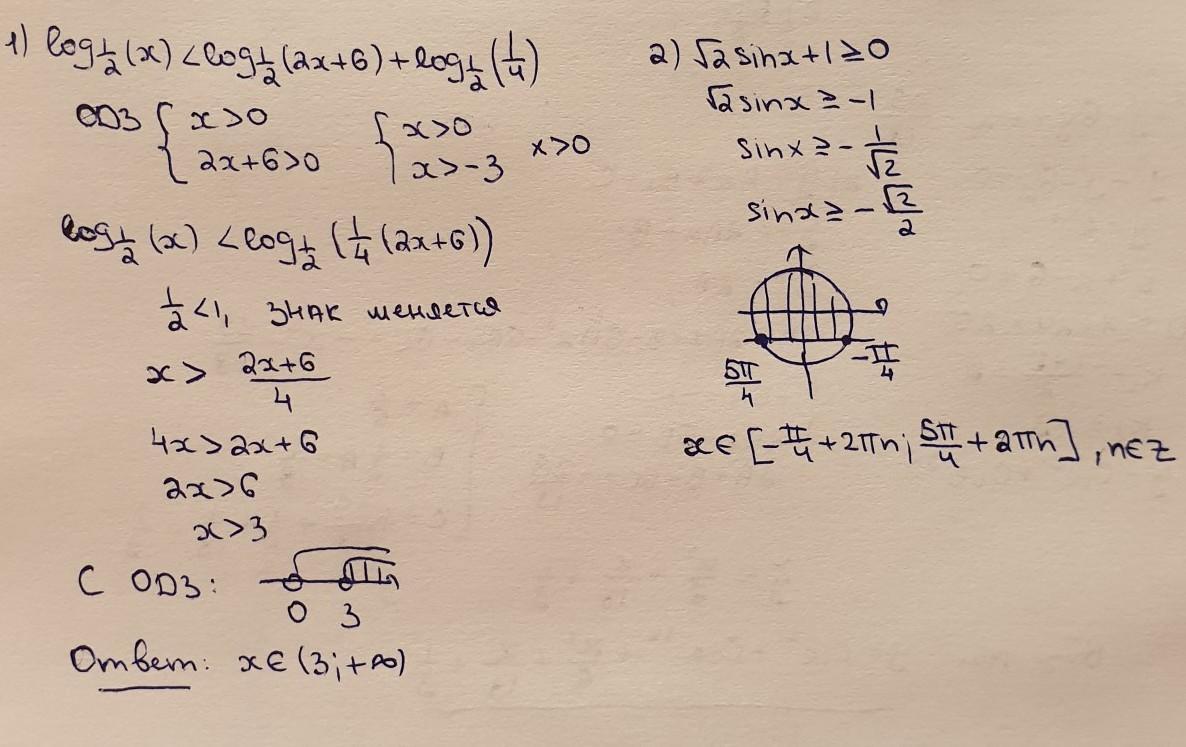 1) log_{1/2}(x) < log_{1/2}(2x+6) + log_{1/2}(1/4)
ОДЗ { x>0 { x>0
2x+6>0 x>-3 x>0
log_{1/2}(x) < log_{1/2}(1/4(2x+6))
1/2<1, знак меняется
x> (2x+6)/4
4x>2x+6
2x>6
x>3
С ОДЗ:
0 3
Ответ: x∈(3;+∞)
2) √2sinx+1≥0
√2sinx≥-1
sinx≥-1/√2
sinx≥-√2/2
5π/4 -π/4
x∈[-π/4+2πn; 5π/4+2πn], n∈Z